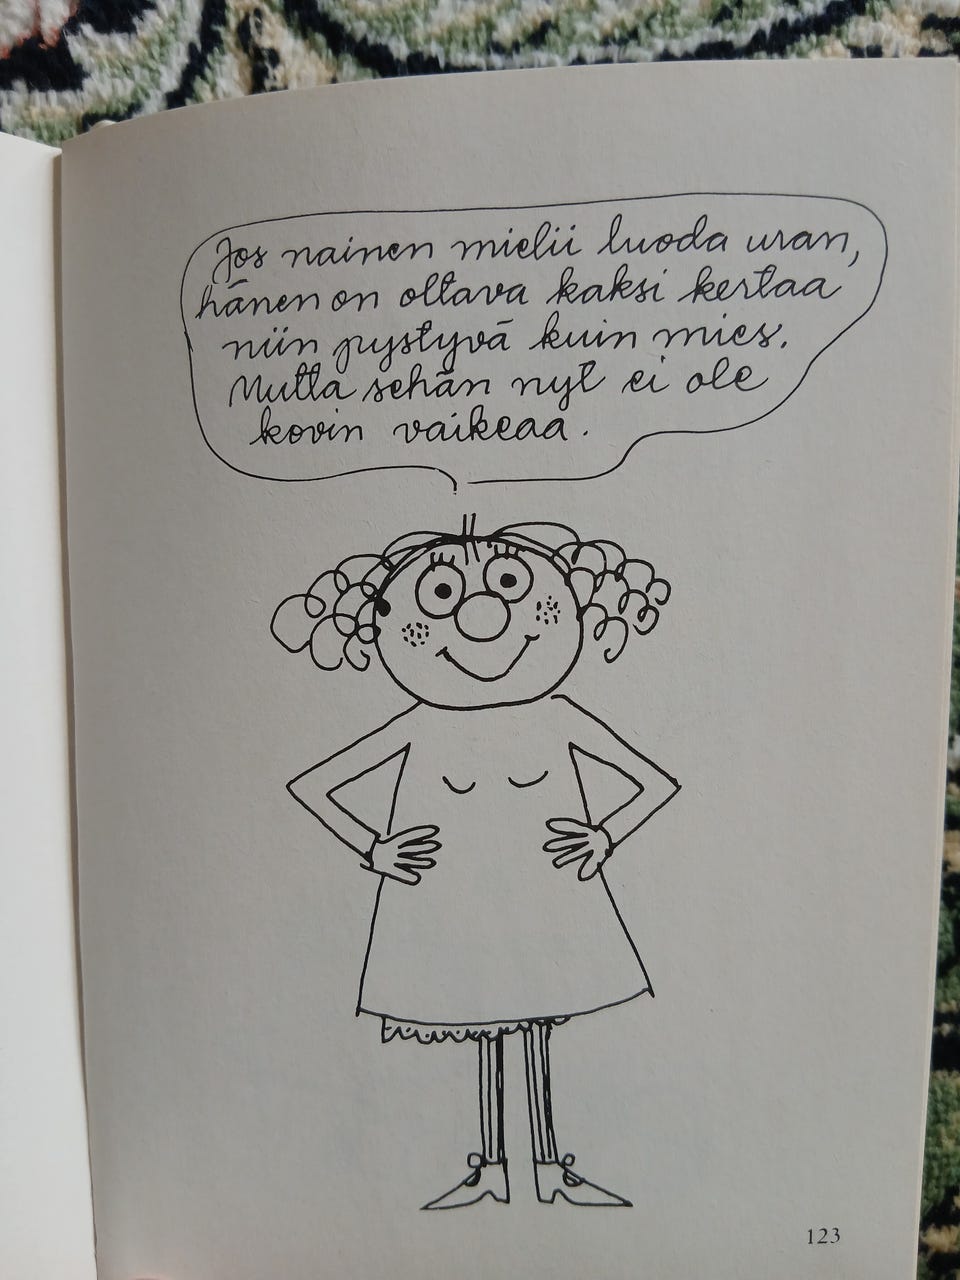 Jos nainen mielii luoda uran,
hänen on oltava kaksi kertaa
niin pystyvä kuin mies.
Mutta sehän nyt ei ole
kovin vaikeaa.
123